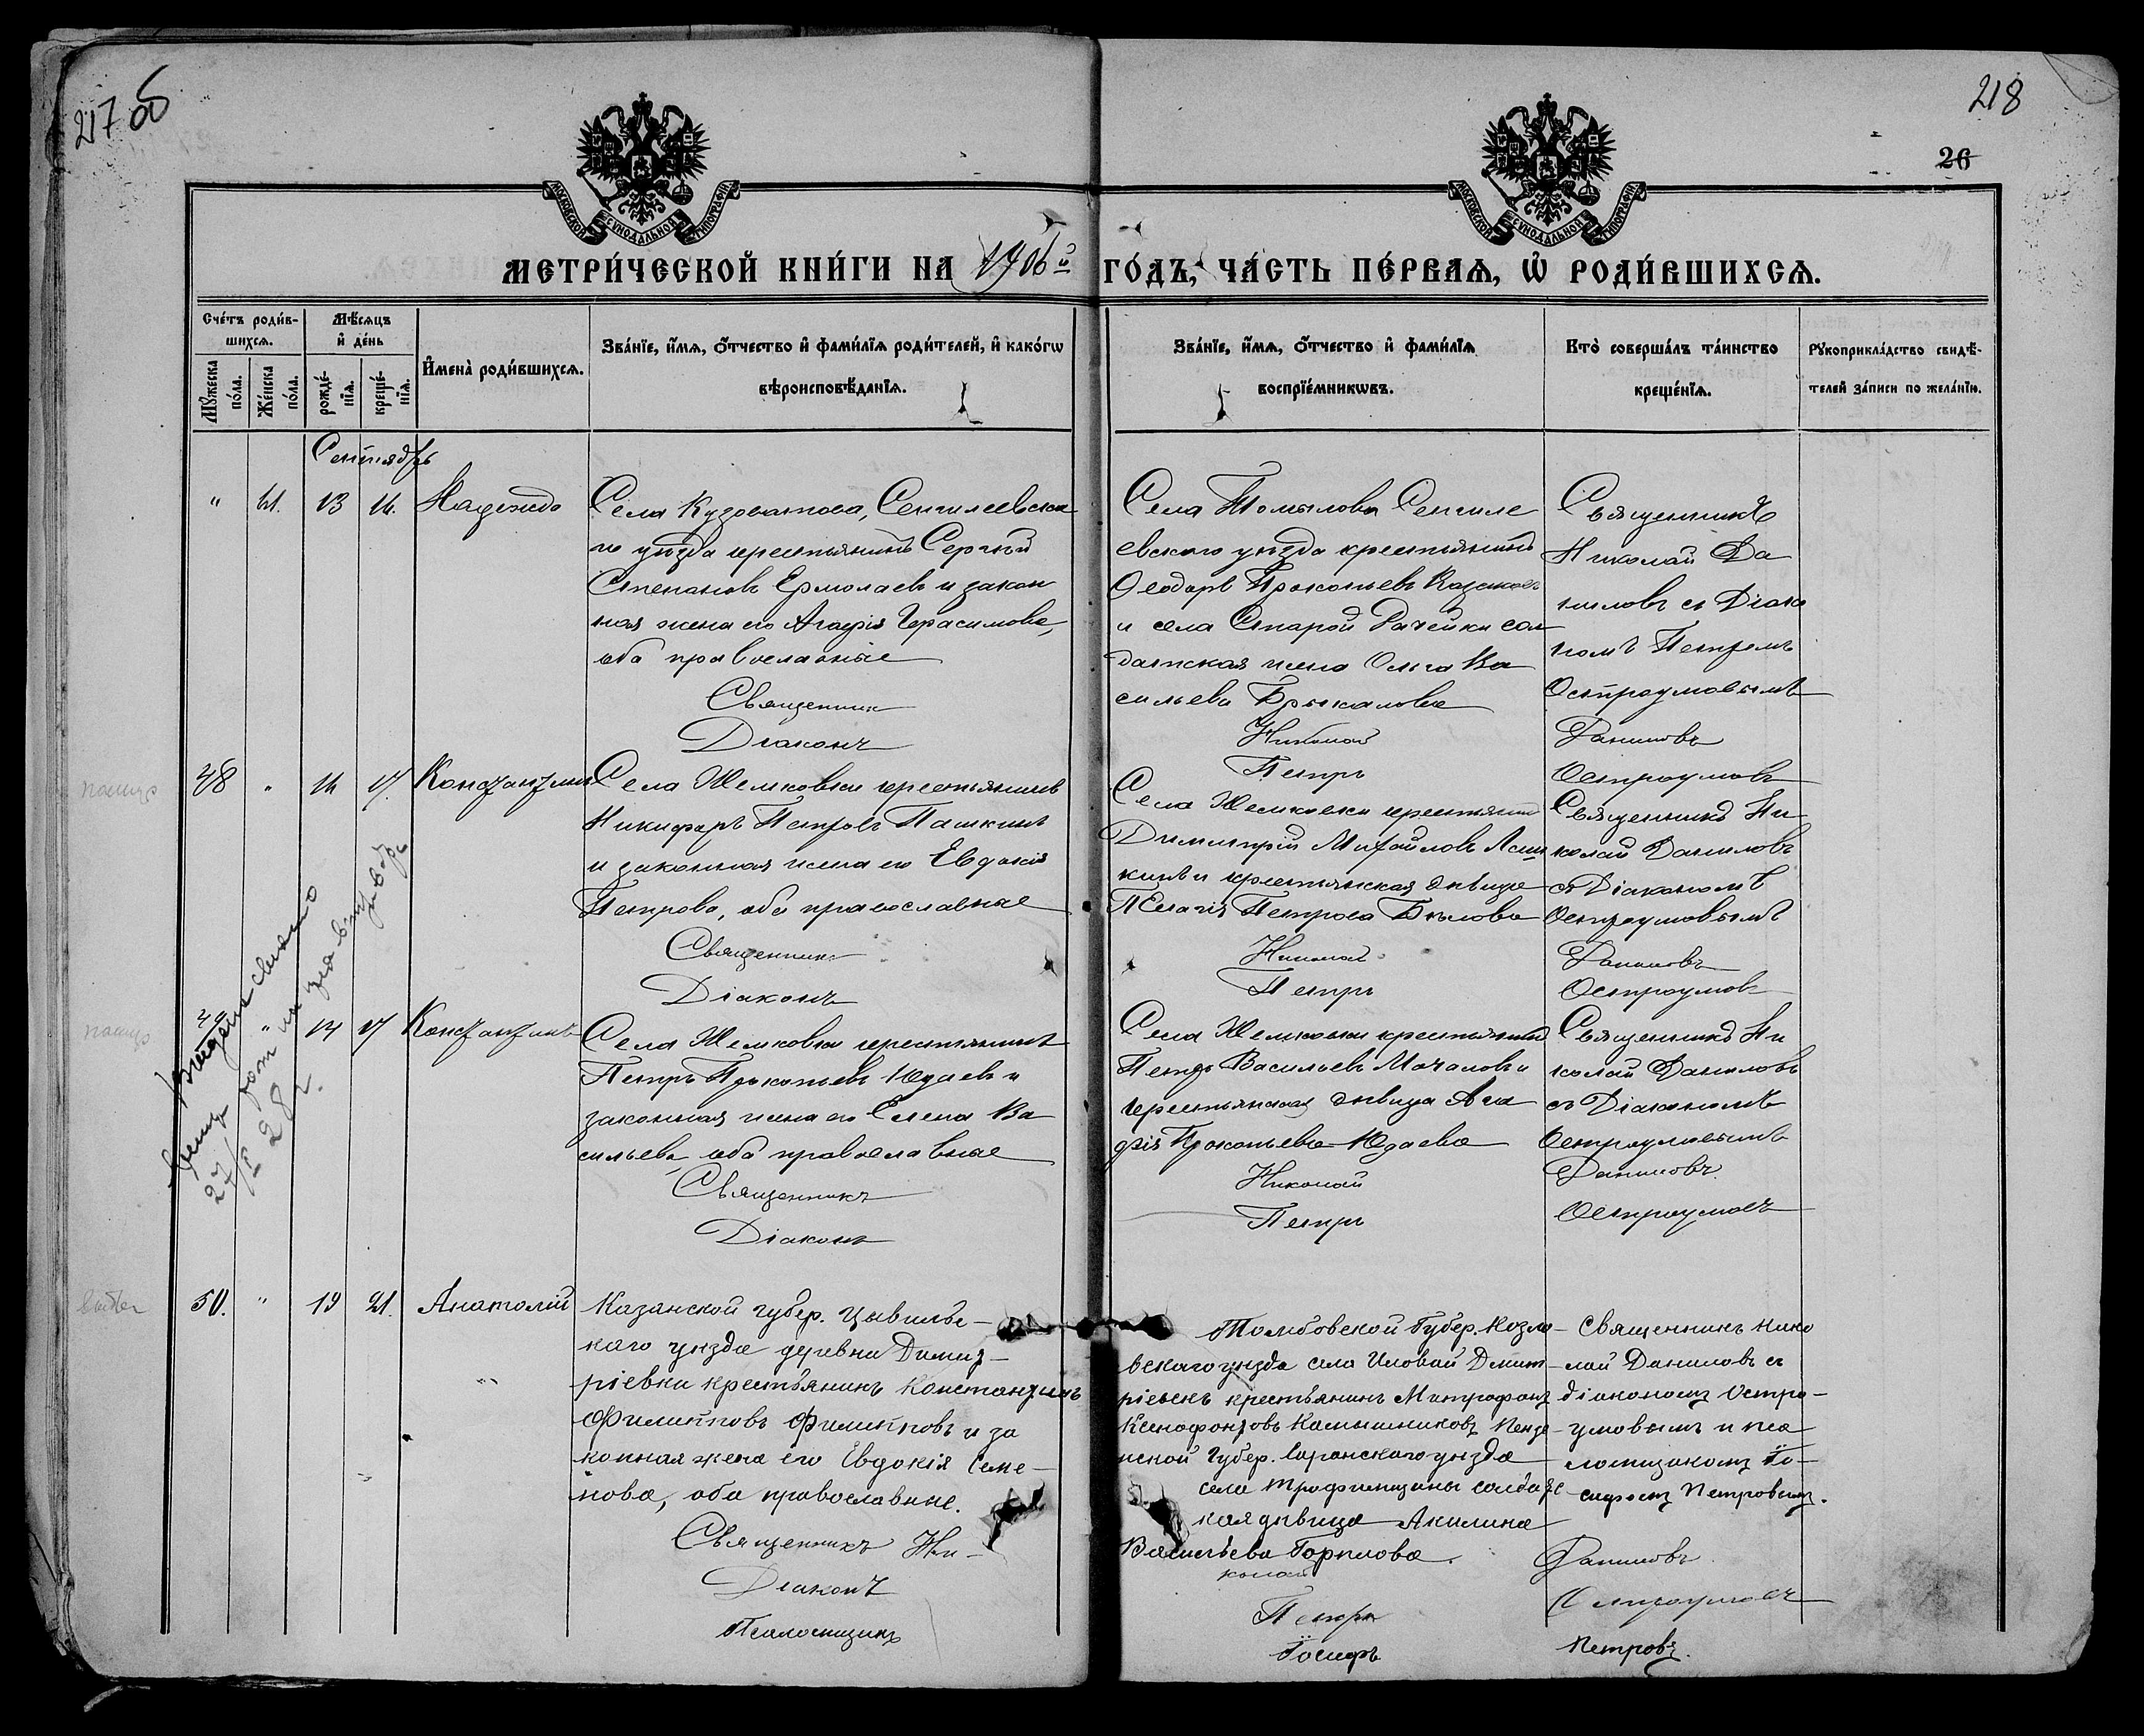 217 об
218
26
МОСКОВСКОЙ СѴНОДАЛЬНОЙ ТИПОГРАФІИ
МОСКОВСКОЙ СѴНОДАЛЬНОЙ ТИПОГРАФІИ
МЕТРИ́ЧЕСКОЙ КНИ́ГИ НА 1906й ГО́ДЪ, ЧА́СТЬ ПЕ́РВАѦ, Ѡ҆ РОДИ́ВШИХСѦ.
Сче́тъ роди́в-
шихсѧ.
Мѣ́сѧцъ
и҆ де́нь
Мꙋ́жеска
по́ла.
Же́нска
по́ла.
рожде́-
нїѧ.
креще́-
нїѧ.
И҆мена̀ роди́вшихсѧ.
Зва́нїе, и҆́мѧ, ѻ҆́тчество и҆ фами́лїѧ роди́телей, и҆ како́гѡ
вѣроисповѣ́данїѧ.
Зва́нїе, и҆́мѧ, ѻ҆́тчество и҆ фами́лїѧ
воспрїе́мникѡвъ.
Кто̀ соверша́лъ та́инство
креще́нїѧ.
Рꙋкоприкла́дство свидѣ́-
телей за́писи по жела́нїю.
Сентябрь
" 41. 13 14. Надежда
Села Кузоватова, Сенгилеевска
го уѣзда крестьянинъ Сергѣй
Степановъ Ермолаевъ и закон
ная жена его Агафія Герасимова,
оба православные
Священник
Діаконъ
Села Томылова Сенгиле
евскаго уѣзда крестьянинъ
Ѳеодоръ Прокопьевъ
и села Старой Рачейки сол
датская жена Ольга Ва
сильева Брыкалова
Николай
Петръ
Священникъ
Николай Да
ниловъ съ Діако
номъ Петромъ
Остроумовымъ
Даниловъ
Остроумовъ
48 " 14 17. Константинъ
Села Жемковки крестьянинъ
Никифоръ Петровъ Пашкинъ
и законная жена его Евдокія
Петрова, оба православные
Священникъ
Діаконъ
Села Жемковки крестьянинъ
Димитрій Михайловъ
кинъ и крестьянская дѣвица
Пелагія Петрова Бѣлова
Николай
Петръ
Священникъ Ни
колай Даниловъ
съ Діакономъ
Остроумовымъ
Даниловъ
Остроумовъ
49 " 14 17 Константинъ
Села Жемковки крестьянинъ
Петръ Прокопьевъ Юдаевъ и
законная жена его Елена Ва
сильева, оба православные
Священникъ
Діаконъ
Села Жемковки крестьянинъ
Петръ Васильевъ Мочаловъ и
крестьянская дѣвица Ага
фія Прокопьева Юдаева
Николай
Петръ
Священникъ Ни
колай Даниловъ
съ Діакономъ
Остроумовымъ
Даниловъ.
Остроумовъ
27/X 28 г.
50. " 19 21. Анатолій
Казанской губер. Цывильс-
каго уѣзда деревни Димит-
ріевки крестьянинъ Константинъ
Филипповъ Филипповъ и за
конная жена его Евдокія Семе-
нова, оба православные.
Священникъ Ни-
Діаконъ
Псаломщикъ
Тамбовской Губер. Козло-
вскаго уѣзда села Иловай Дмит-
ріевскъ крестьянинъ Митрофанъ
Ксенофонтовъ Камышниковъ Пензе-
нской Губер. Саранскаго уѣзда
села Трофимщины солдатс-
кая дѣвица Акилина
Васильева Горилова.
колай
Петръ
Іосифъ
Священникъ Нико
лай Даниловъ съ
діакономъ Остро-
умовымъ и пса
ломщикомъ Іо-
сифомъ Петровымъ.
Даниловъ
Остроумовъ
Петровъ.